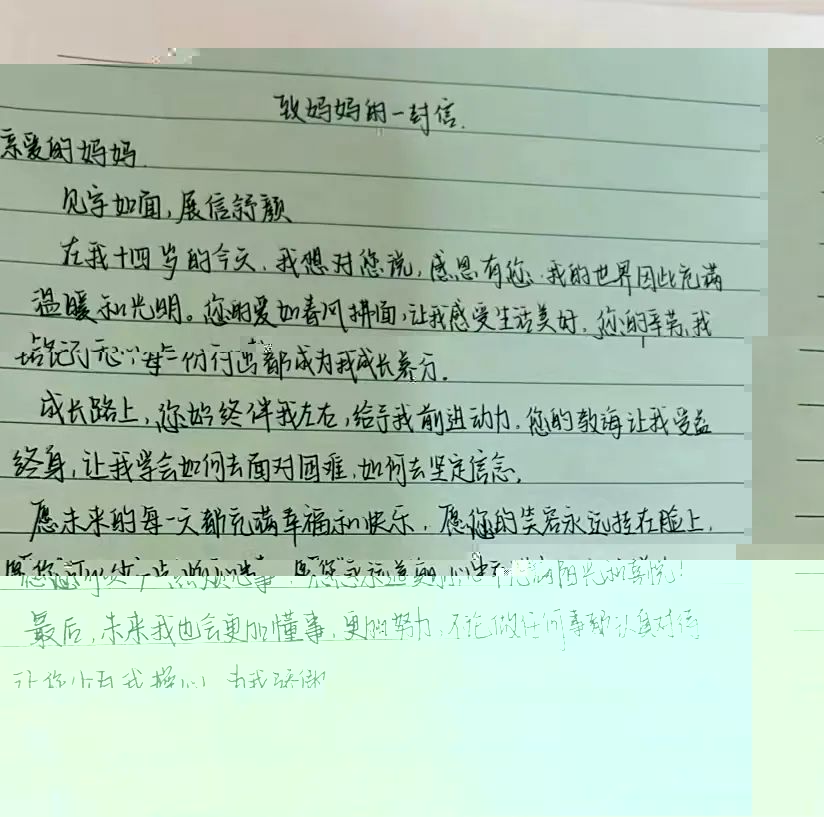 致妈妈的一封信.
亲爱的妈妈
见字如面,展信舒颜
在我十四岁的今天,我想对您说,感恩有您.我的世界因此充满
温暖和光明。您的爱如春风拂面,让我感受生活美好.您的辛苦,我
份付出都成为我成长养分.
成长路上,您始终伴我左右,给予我前进动力.您的教诲让我受益
终身,让我学会如何去面对困难,如何去坚定信念.
愿未来的每一天都充满幸福和快乐.愿您的笑容永远挂在脸上,
阳光和喜悦!
最后,未来我也会更加懂事,更加努力,不论做任何事都认真对待